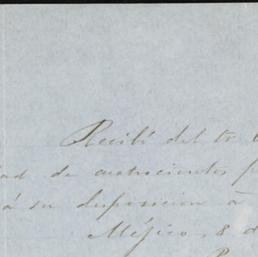 Recibí del Sr
ad de cuatrocientos p
á su disposicion á
Méjico, 8 d